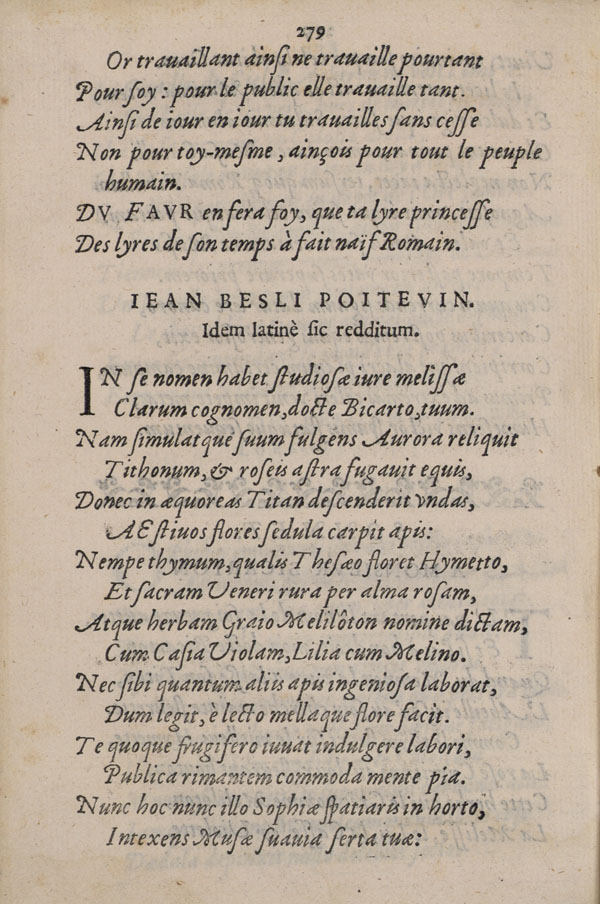 279
Or trauaillant ainſi ne trauaille pourtant
Pour ſoy : pour le public elle trauaille tant.
Ainſi de iour en iour tu trauailles ſans ceſſe
Non pour toy-meſme, ainçois pour tout le peuple
humain.
DV FAVR en fera foy, que ta lyre princeſſe
Des lyres de ſon temps à fait naïf Romain.
IEAN BESLI POITEVIN.
Idem latinè ſic redditum.
IN ſe nomen habet ſtudioſæ iure meliſſæ
Clarum cognomen, docte Bicarto, tuum.
Nam ſimulatque ſuum fulgens Aurora reliquit
Tithonum, & roſeis aſtra fugauit equis,
Donec in æquoreas Titan deſcenderit vndas,
AEſtiuos flores ſedula carpit apis:
Nempe thymum, qualis Theſæo floret Hymetto,
Et ſacram Veneri rura per alma roſam,
Atque herbam Graio Melilôton nomine dictam,
Cum Caſia Violam, Lilia cum Melino.
Nec ſibi quantum aliis apis ingenioſa laborat,
Dum legit, è lecto mellaque flore facit.
Te quoque frugifero iuuat indulgere labori,
Publica rimantem commoda mente pia.
Nunc hoc nunc illo Sophiæ ſpatiaris in horto,
Intexens Muſæ ſuauia ſerta tuæ: